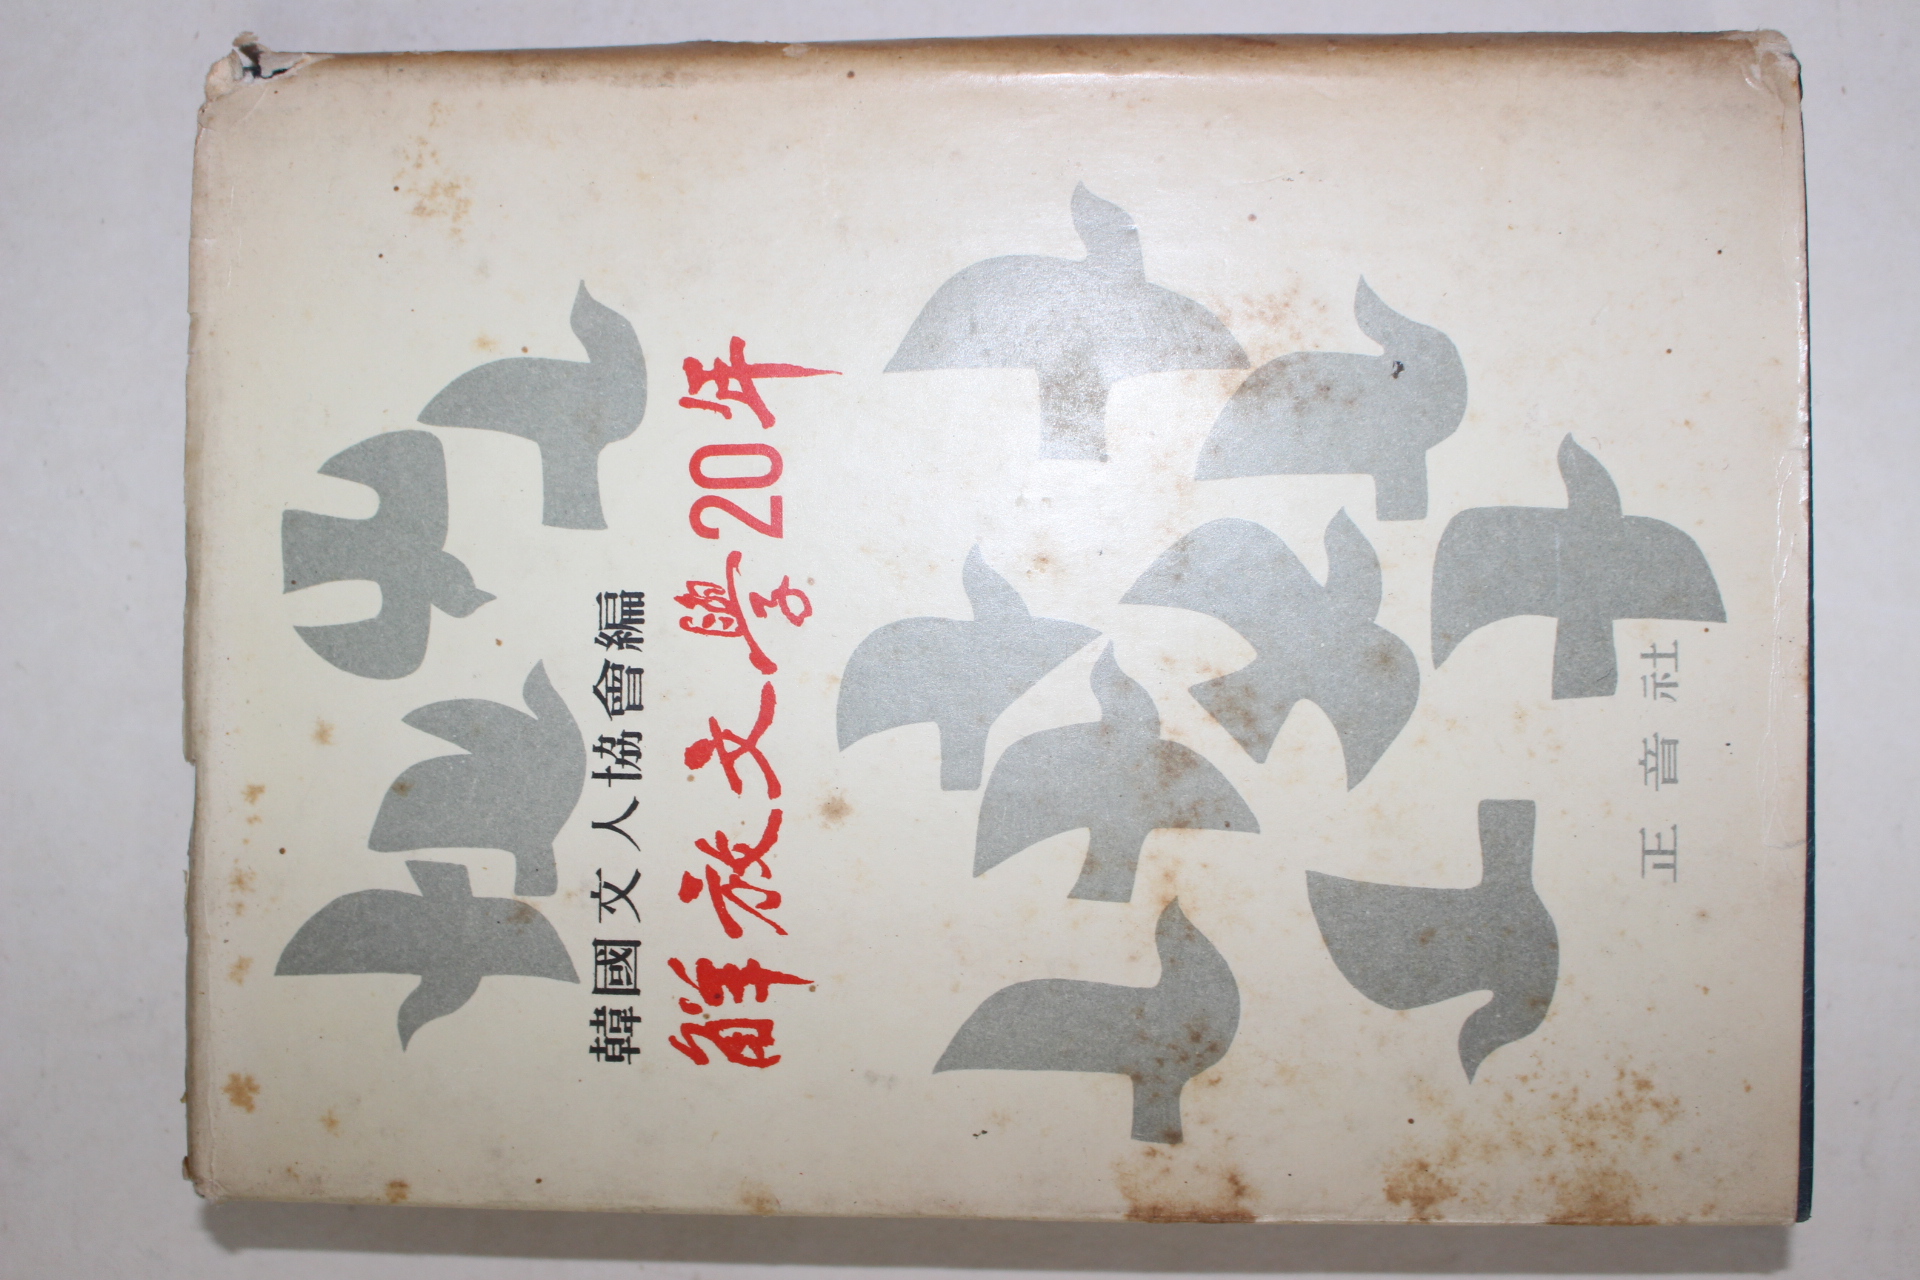 韓國文人協會編
解放文學20年
正音社